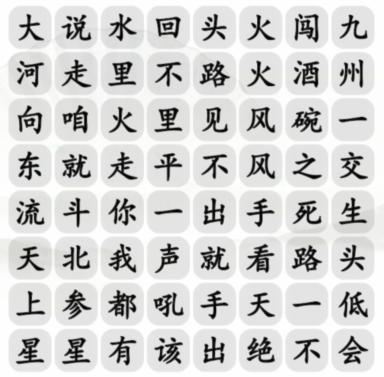 大说水回头火闯九
河走里不路火酒州
向咱火里见风碗一
东就走平不风之交
流斗你一出手死生
天北我声就看路头
上参都吼手天一低
星星有该出绝不会